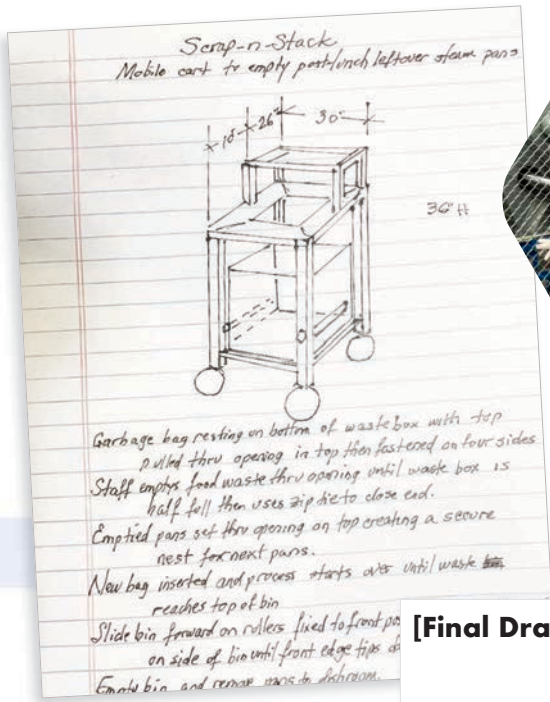 Scrap-n-Stack
Mobile cart to empty post-lunch leftover steam pans
18" 26" 30"
36" H
Garbage bag resting on bottom of waste box with top
pulled thru opening in top then fastened on four sides
Staff emptys food waste thru opening until waste box is
half full then uses zip tie to close end.
Emptied pans set thru opening on top creating a secure
nest for next pans.
New bag inserted and process starts over until waste
reaches top of bin
Slide bin forward on rollers fixed to front
on side of bin until front edge tips
Empty bin and remove pans to dishroom.
[Final Dra